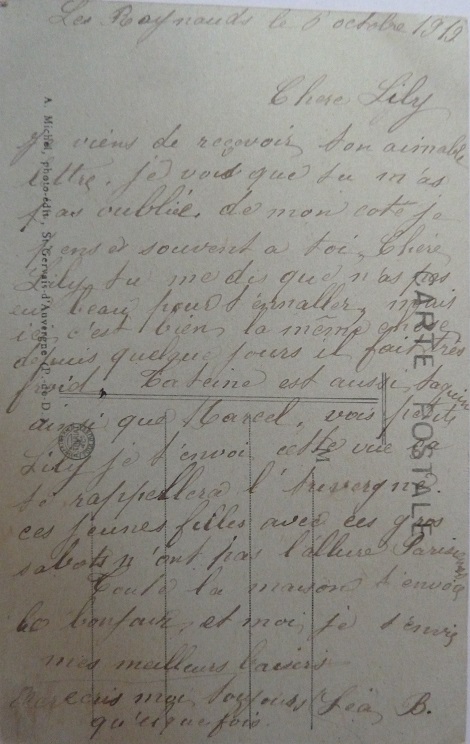 Les Raynauds le 6 octobre 1913
Chere Lily
Je viens de reçevoir ton aimable
lettre. je vois que tu m'as
pas oubliée. de mon coté je
pense souvent a toi, Chère
Lily, tu me dis que n'as pas
eu beau pour t'enaller, mais
ici c'est bien la même chose
depuis quelque jours il fait très
froid. est aussi taquin
ainsi que Marcel, vois petite
Lily je t'envoi cette vue ça
te rappellera l'Auvergne.
ces jeunes filles avec ces gros
sabots n'ont pas l'allure Parisienne
Toute la maison t'envoa
le bonjour, et moi je t'envoie
mes meilleurs baisers
ecris moi toujours Léa B.
quelque fois.
CARTE POSTALE
A. Michel, photo-édit., St-Gervais-d'Auvergne (P.-de-D.)
M